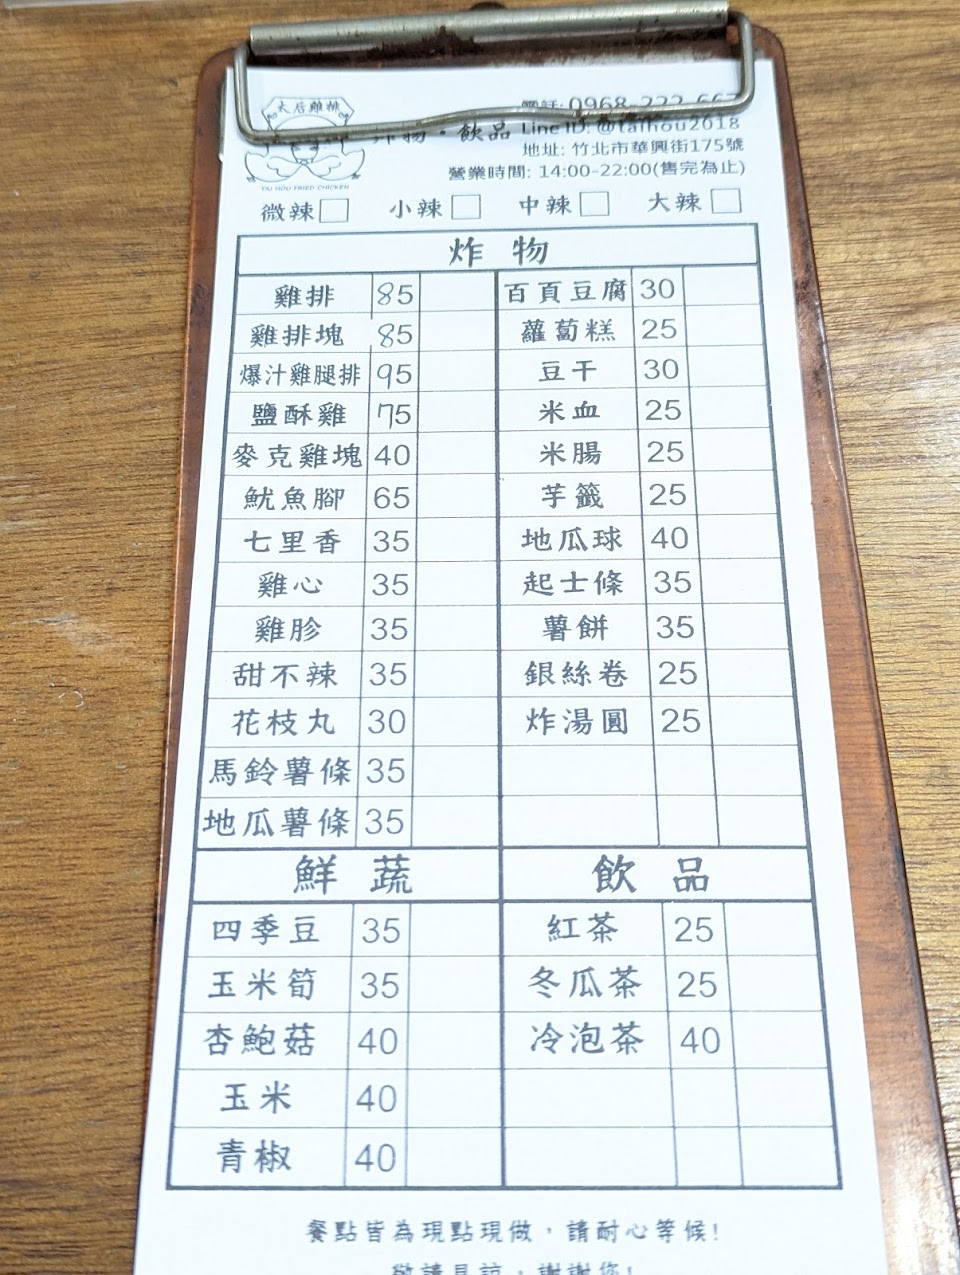 太后雞排
TAI HOU FRIED CHICKEN
炸物・飲品
電話: 0968-222-667
Line ID: @taihou2018
地址: 竹北市華興街175號
營業時間: 14:00-22:00(售完為止)
微辣 小辣 中辣 大辣
炸物
雞排 85 百頁豆腐 30
雞排塊 85 蘿蔔糕 25
爆汁雞腿排 95 豆干 30
鹽酥雞 75 米血 25
麥克雞塊 40 米腸 25
魷魚腳 65 芋籤 25
七里香 35 地瓜球 40
雞心 35 起士條 35
雞胗 35 薯餅 35
甜不辣 35 銀絲卷 25
花枝丸 30 炸湯圓 25
馬鈴薯條 35
地瓜薯條 35
鮮蔬 飲品
四季豆 35 紅茶 25
玉米筍 35 冬瓜茶 25
杏鮑菇 40 冷泡茶 40
玉米 40
青椒 40
餐點皆為現點現做，請耐心等候!
敬請見諒，謝謝您!